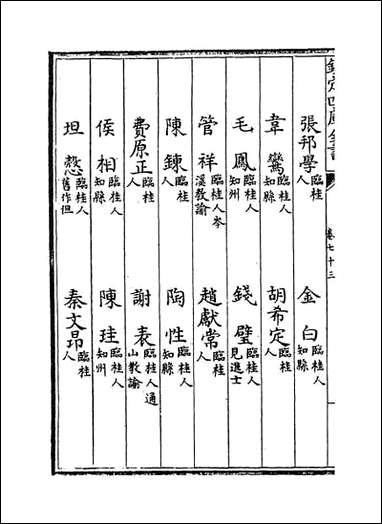 欽定四庫全書
卷七十三
張邦學臨桂人
金白臨桂人知縣
韋鸞臨桂人知縣
胡希定臨桂人
毛鳳臨桂人知州
錢璧臨桂人見進士
管祥臨桂人岑溪教諭
趙獻常臨桂人
陳鍊臨桂人
陶性臨桂人知縣
費原正臨桂人
謝表臨桂人通山教諭
侯相臨桂人知縣
陳珪臨桂人知州
坦慤臨桂人舊作但
秦文昂臨桂人